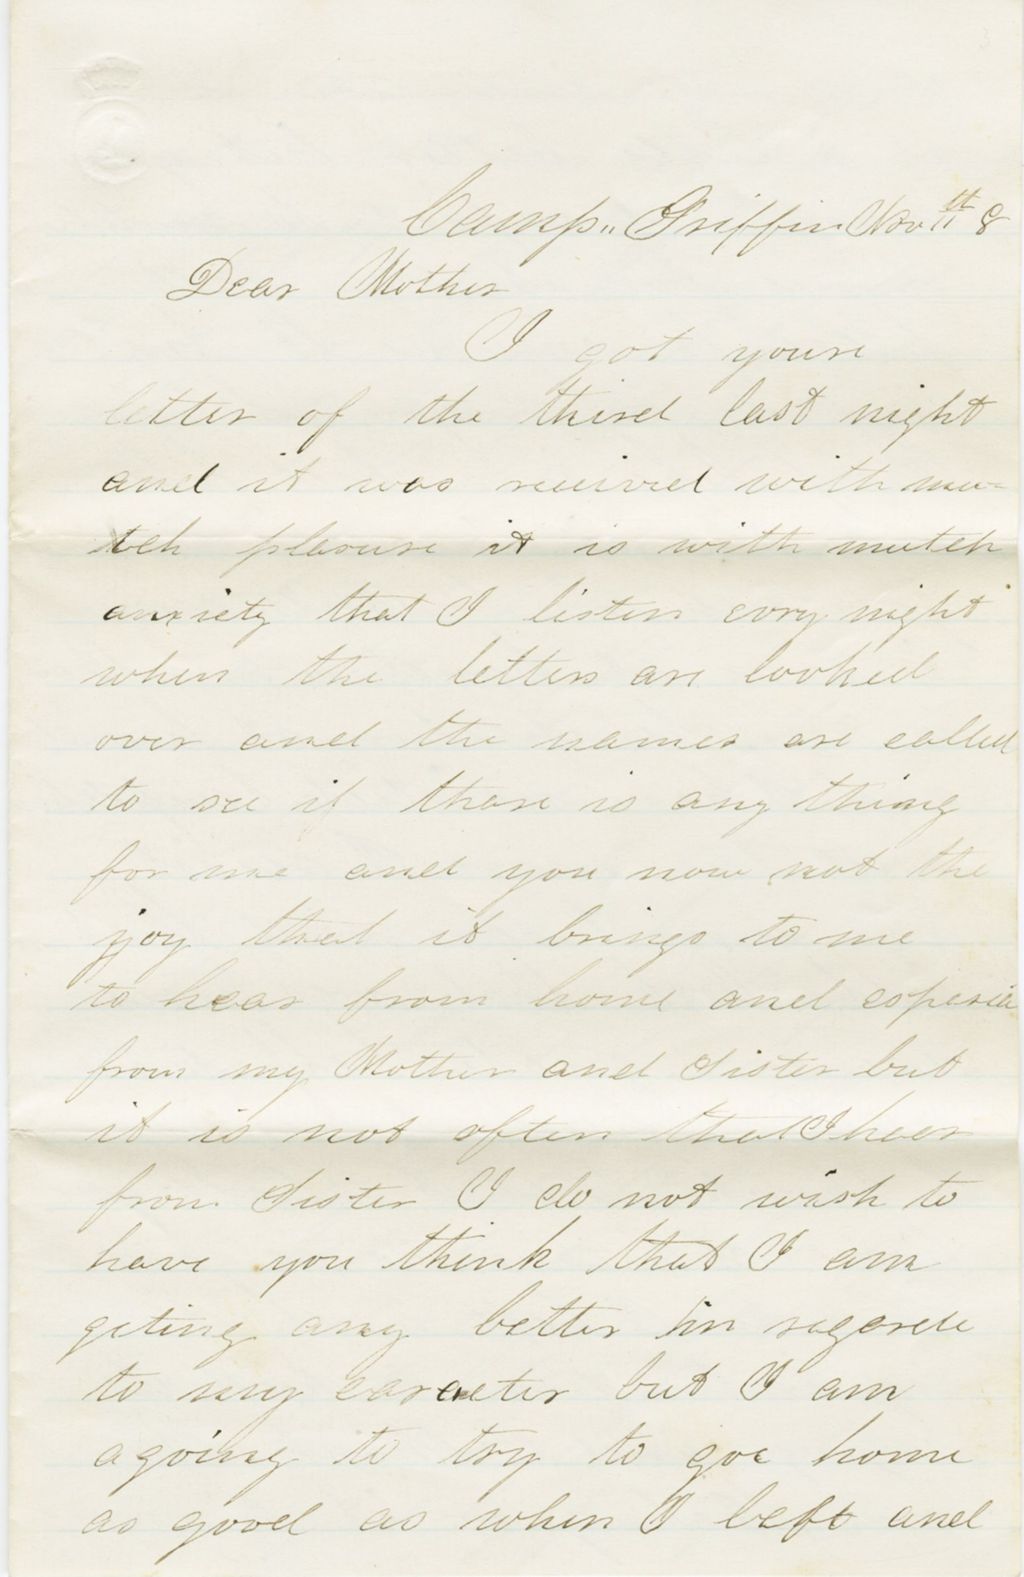 Camp,, Griffin Nov 8th
Dear Mother
I got youre
letter of the third last night
and it was reicived with mu=
tch plasure it is with mutch
anxiety that I listen evry night
when the letters are looked
over and the names are called
to see if thare is any thing
for me and you now not the
joy that it brings to me
to hear from home and espesia
from my Mother and Sister but
it is not often that I hear
from Sister I do not wish to
have you think that I am
geting any better in regarde
to my caracter but I am
agoing to try to goe home
as good as when I left and